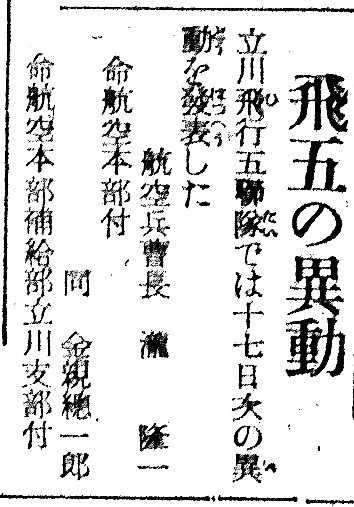 飛五の異動
立川飛行五聯隊では十七日次の異
動を發表した
航空兵曹長 瀧 隆一
命航空本部付
同 金親總一郎
命航空本部補給部立川支部付